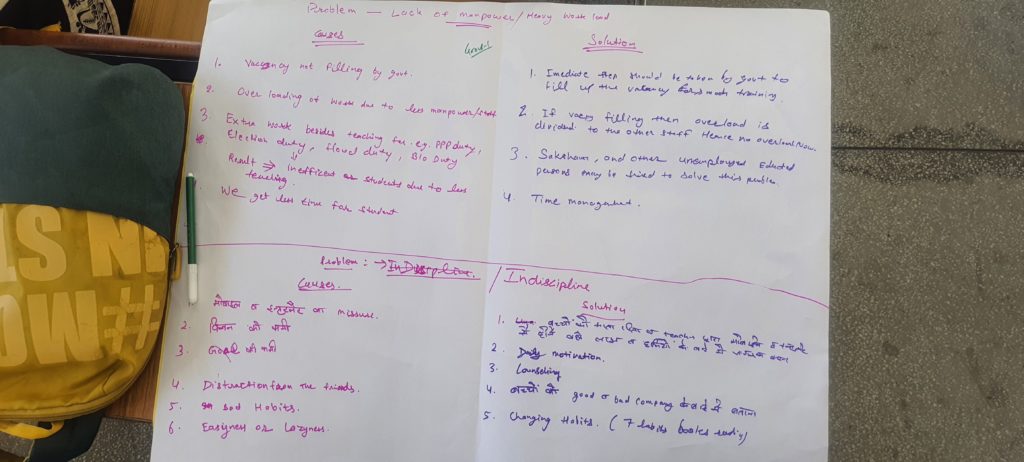 Problem — Lack of manpower/Heavy work load
Causes
Group-1
1. Vacancy not filling by govt.
2. Over loading of work due to less manpower/staff
3. Extra work besides teaching for. eg. PPP duty,
Election duty, flood duty, Blo Duty
Result ⇒ inefficient students due to less
teaching.
We get less time for student
Solution
1. Imediate step should be taken by govt to
fill up the vacancy training.
2. If filling then overload is
divided to the other staff Hence no overload Now.
3. Saksham, and other unemployed Educted
persons may be hired to solve this problem.
4. Time management.
Problem : → Indiscipline
Causes.
1. मोबाइल व इन्टरनैट का missuse.
2. विजन की कमी
3. Goal की कमी
4. Distruction from the friends.
5. bad Habits.
6. Easyness or Lazyness.
Solution
1. बच्चों को माता पिता व teacher द्वारा मोबाइल इन्टरनेट
से होने वाले लाभ व हानियों के बारे में
2. motivation.
3. Counseling
4. बच्चों को good व bad company के बारे में बताना
5. Changing Habits. ( 7 habits books )